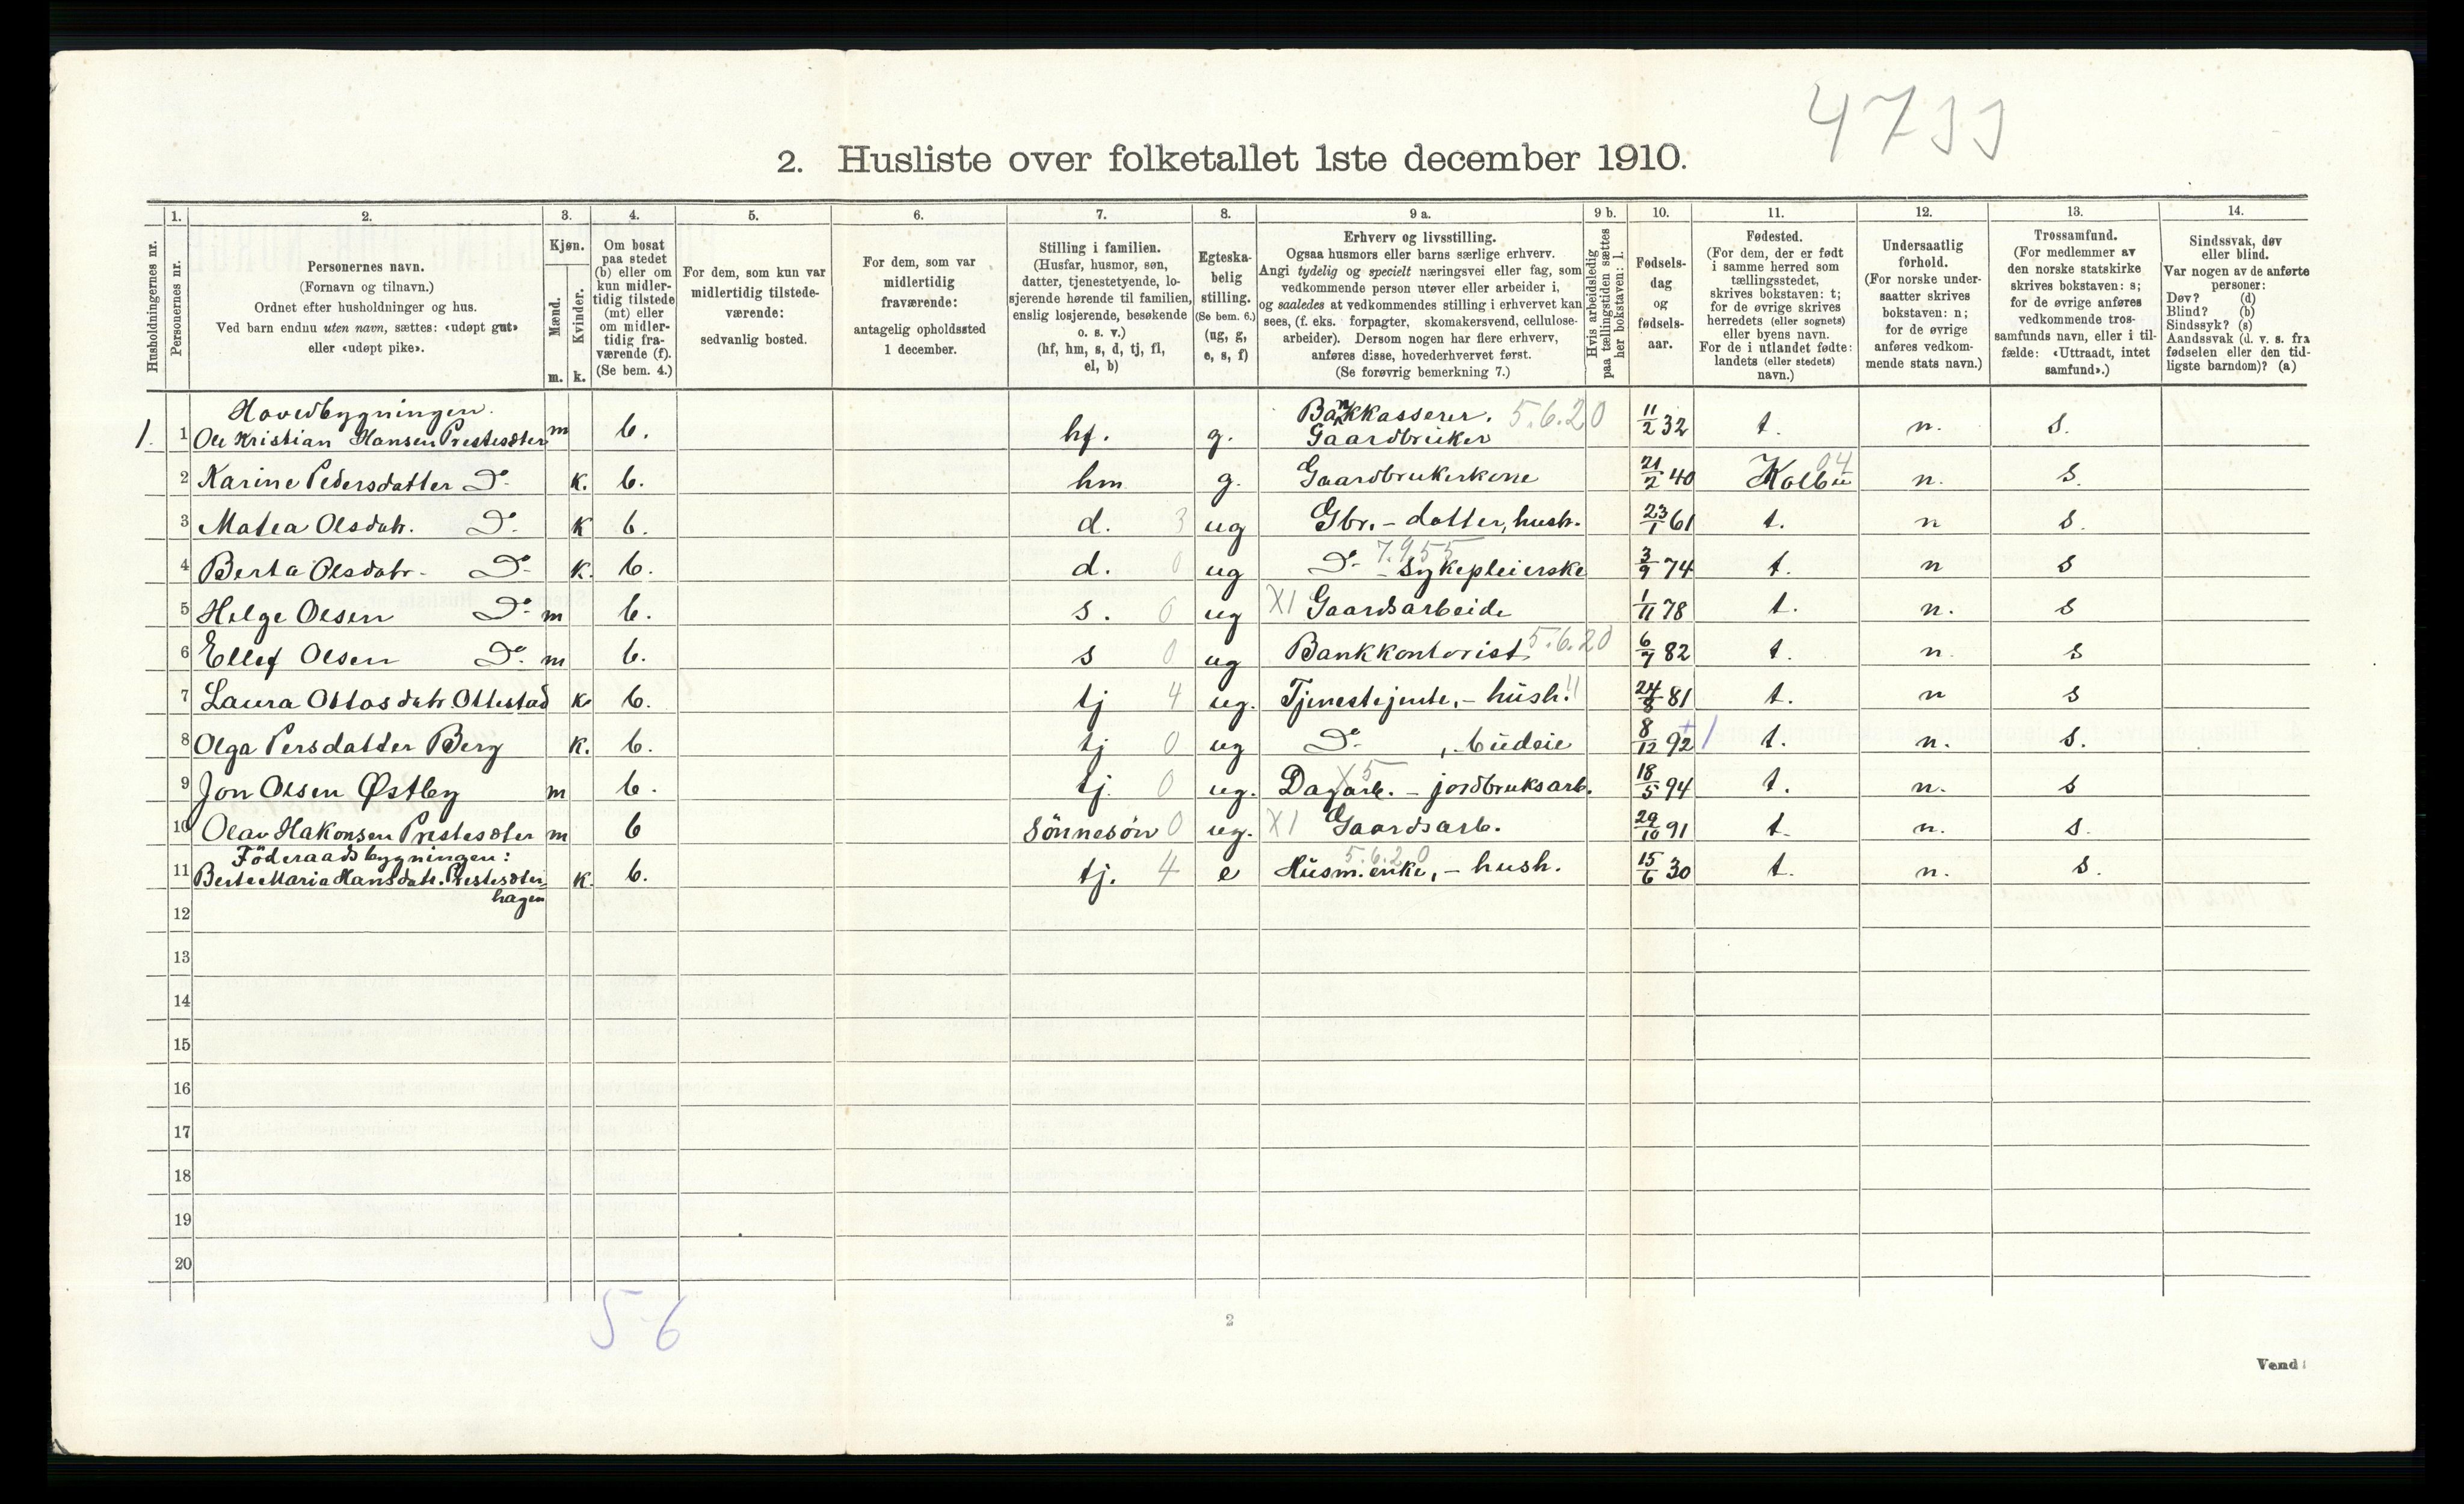 4733
2. Husliste over folketallet 1ste december 1910.
Husholdningernes nr.
1.
Personernes nr.
2.
Personernes navn.
(Fornavn og tilnavn.)
Ordnet efter husholdninger og hus.
Ved barn endnu uten navn, sættes: «udøpt gut»
eller «udøpt pike».
3.
Kjøn.
Mænd.
Kvinder.
m. k.
4.
Om bosat
paa stedet
(b) eller om
kun midler-
tidig tilstede
(mt) eller
om midler-
tidig fra-
værende (f).
(Se bem. 4.)
5.
For dem, som kun var
midlertidig tilstede-
værende:
sedvanlig bosted.
6.
For dem, som var
midlertidig
fraværende:
antagelig opholdssted
1 december.
7.
Stilling i familien.
(Husfar, husmor, søn,
datter, tjenestetyende, lo-
sjerende hørende til familien,
enslig losjerende, besøkende
o. s. v.)
(hf, hm, s, d, tj, fl,
el, b)
8.
Egteska-
belig
stilling.
(Se bem. 6.)
(ug, g,
e, s, f)
9 a.
Erhverv og livsstilling.
Ogsaa husmors eller barns særlige erhverv.
Angi tydelig og specielt næringsvei eller fag, som
vedkommende person utøver eller arbeider i,
og saaledes at vedkommendes stilling i erhvervet kan
sees, (f. eks. forpagter, skomakersvend, cellulose-
arbeider). Dersom nogen har flere erhverv,
anføres disse, hovederhvervet først.
(Se forøvrig bemerkning 7.)
9 b.
Hvis arbeidsledig
paa tællingstiden sættes
her bokstaven: l.
10.
Fødsels-
dag
og
fødsels-
aar.
11.
Fødested.
(For dem, der er født
i samme herred som
tællingsstedet,
skrives bokstaven: t;
for de øvrige skrives
herredets (eller sognets)
eller byens navn.
For de i utlandet fødte:
landets (eller stedets)
navn.)
12.
Undersaatlig
forhold.
(For norske under-
saatter skrives
bokstaven: n;
for de øvrige
anføres vedkom-
mende stats navn.)
13.
Trossamfund.
(For medlemmer av
den norske statskirke
skrives bokstaven: s;
for de øvrige anføres
vedkommende tros-
samfunds navn, eller i til-
fælde: «Uttraadt, intet
samfund».)
14.
Sindssvak, døv
eller blind.
Var nogen av de anførte
personer:
Døv? (d)
Blind? (b)
Sindssyk? (s)
Aandssvak (d. v. s. fra
fødselen eller den tid-
ligste barndom)? (a)
Hovedbygningen. Bankkasserer. 5.6.20
1. 1 Ole Kristian Hansen Prestesæter m b. hf. g. Gaardbruker 11/2 32 t. n. s.
2 Karine Pedersdatter Do k. b. hm g. Gaardbrukerkone 21/2 40 Kolbu 04 n. s.
3 Matea Olsdatr. Do k b. d. 3 ug Gbr. - datter, hush. 23/1 61 t. n s.
4 Berta Olsdatr. Do k. b. d. 0 ug Do - Sykepleierske 7.9.55 3/9 74 t. n s
5 Helge Olsen Do m b. s. 0 ug X1 Gaardsarbeide 1/11 78 t. n. s
6 Ellef Olsen Do m b. s 0 ug Bankkontorist 5.6.20 6/7 82 t. n. s
7 Laura Ottosdatr. Ottestad k. b. tj 4 ug. Tjenestejente, - hush. 24/8 81 t. n s
8 Olga Persdatter Berg k. b. tj 0 ug Do , budeie 8/12 92 1 t. n. s.
9 Jon Olsen Østby m b. tj. 0 ug. Dagarb. - jordbruksarb. X5 18/5 94 t. n. s
10 Olav Hakonsen Prestesæter m b sønnesøn 0 ug. X1 Gaardsarb. 29/10 91 t. n. s.
Føderaadsbygningen: 5.6.20
11 Berte Maria Hansdatr. Prestesæter- k. b. tj. 4 e Husm.enke, - hush. 15/6 30 t. n. s.
hagen
12
13
14
15
16
17
18
19
20
5-6
2
Vend!